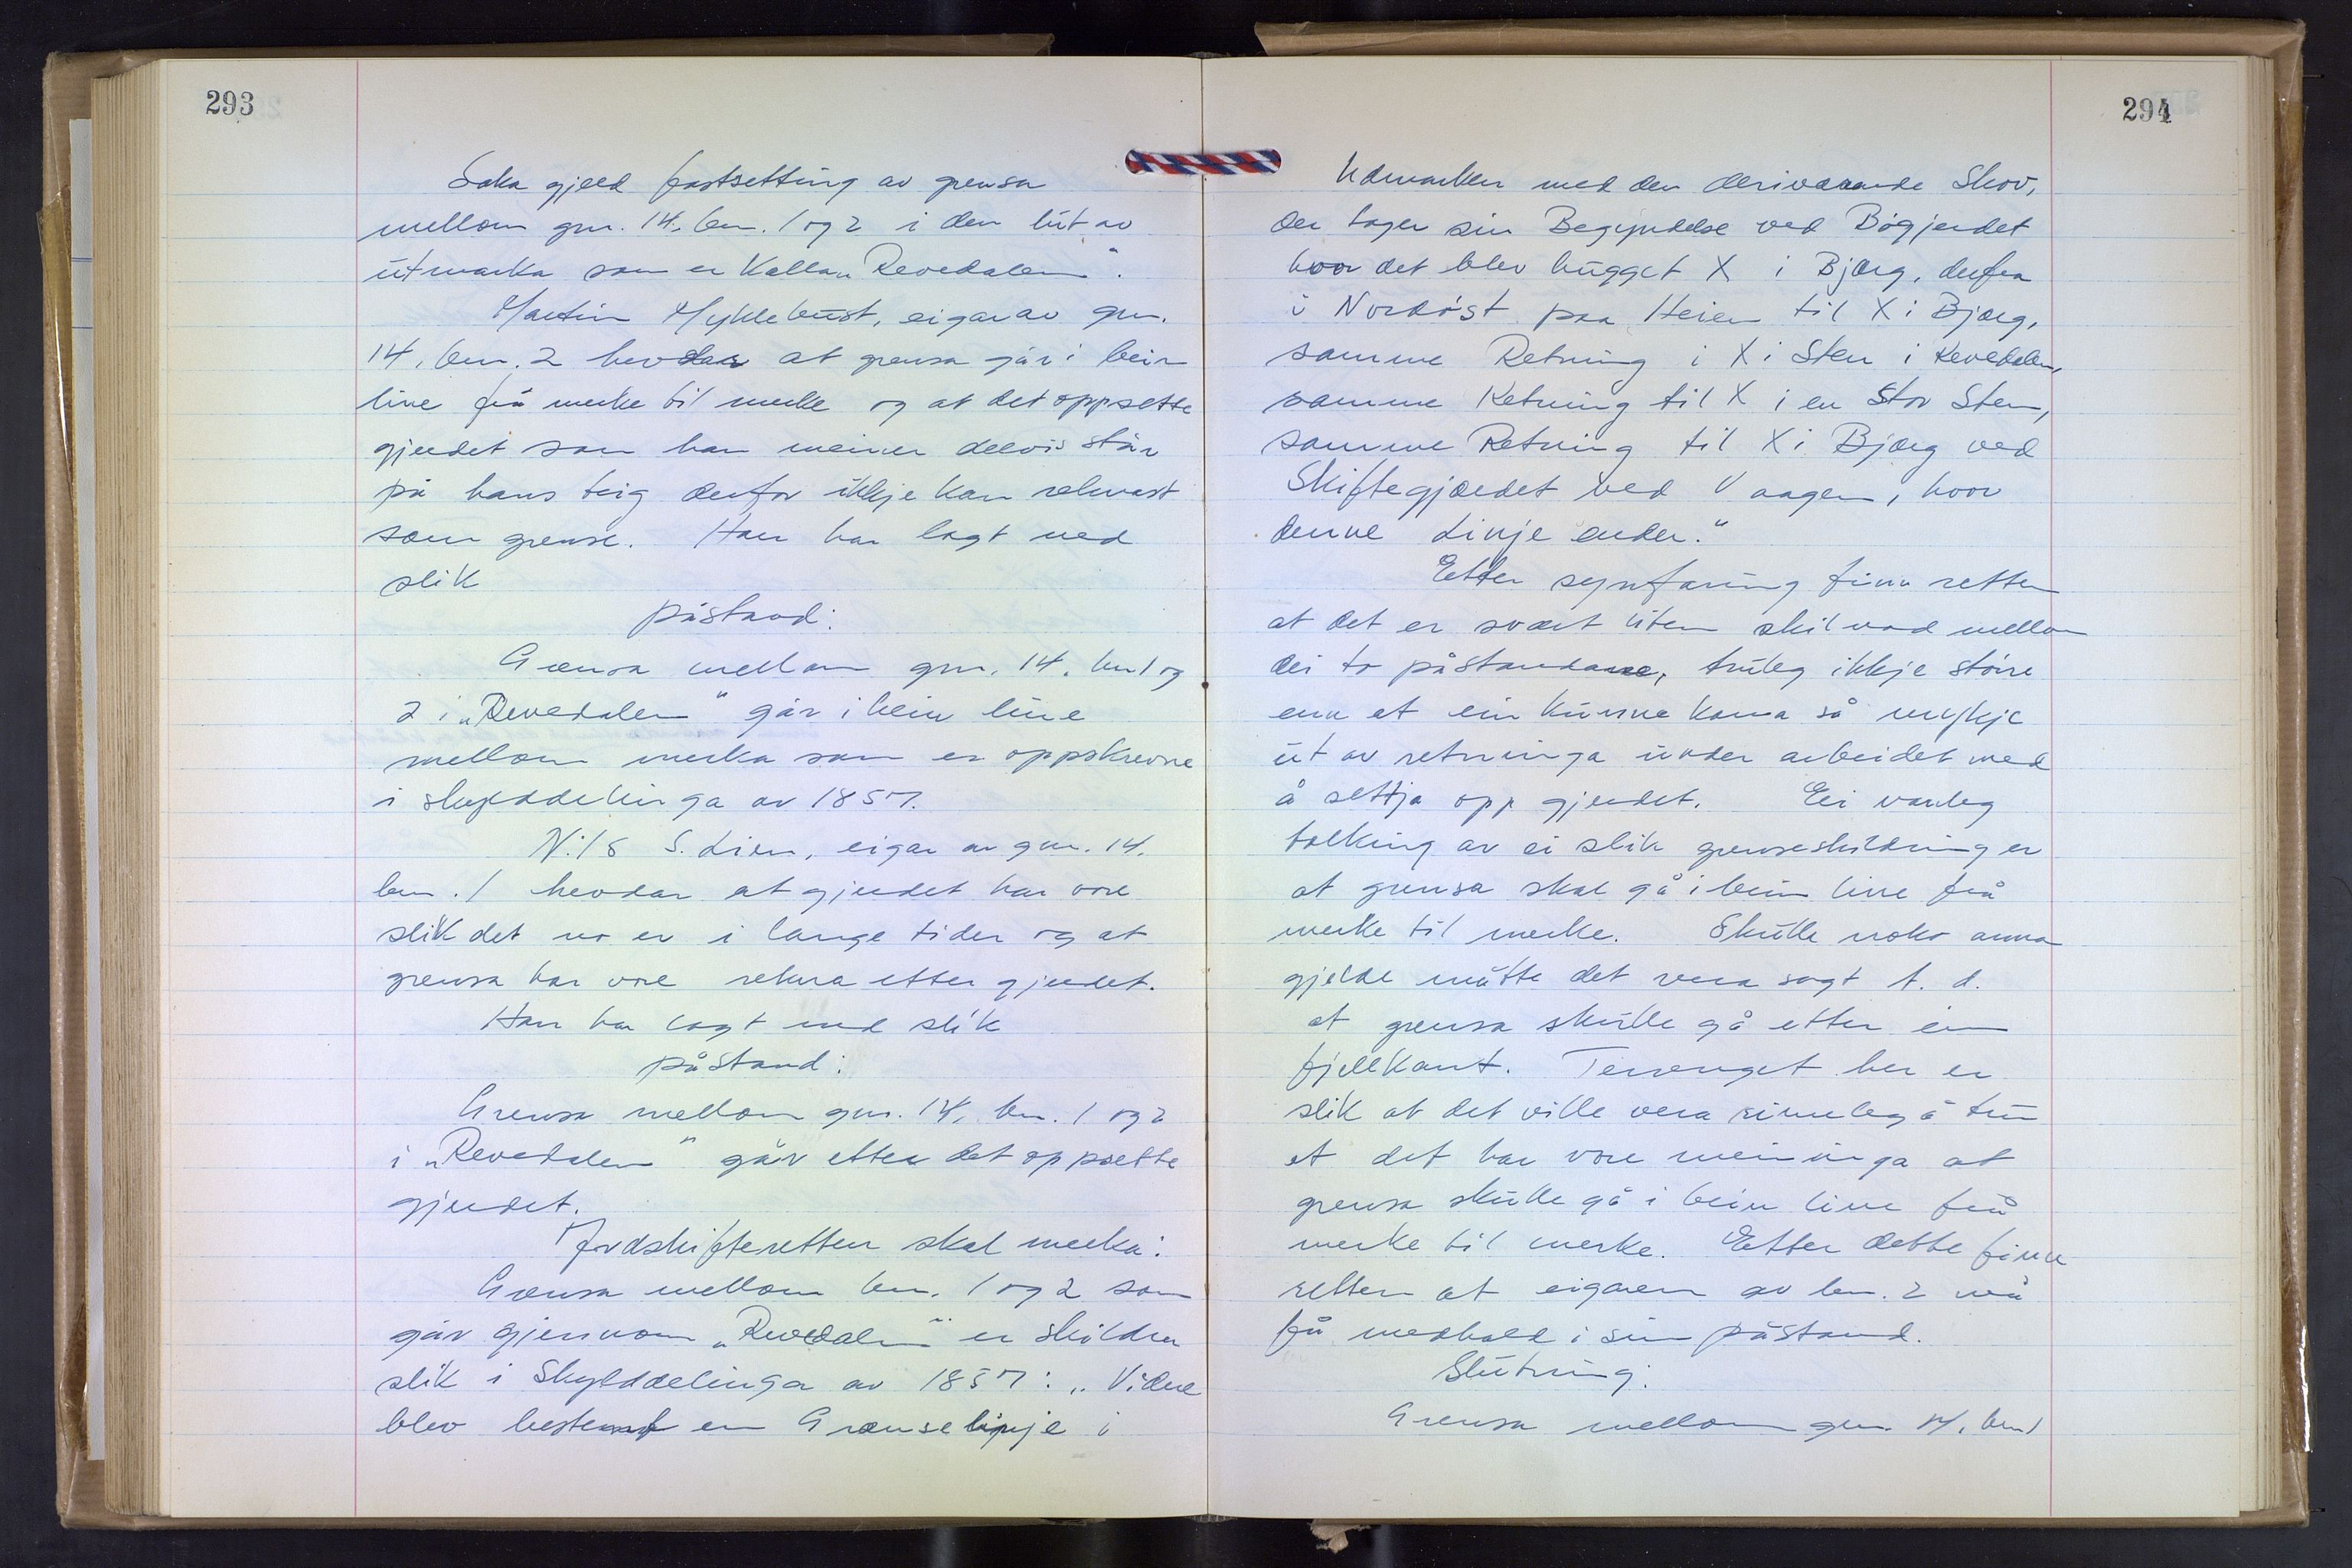 293
Saka gjeld fastsetting av grensa
mellom gnr. 14, bnr. 1 og 2 i den lut av
utmarka som er kalla „Revedalen“.
Martin Myklebust, eigar av gnr.
14, bnr. 2 hevdar at grensa går i bein
line frå merke til merke og at det oppsette
gjerdet som han meiner delvis står
på hans teig derfor ikkje kan reknast
som grense. Han har lagt ned
slik
påstand:
Grensa mellom gnr. 14, bnr 1 og
2 i „Revedalen“ går i bein line
mellom merka som er oppskrevne
i skylddelinga av 1857.
Nils S. Lien, eigar av gnr. 14,
bnr. 1 hevdar at gjerdet har vore
slik det no er i lange tider og at
grensa har vore rekna etter gjerdet.
Han har lagt ned slik
påstand:
Grensa mellom gnr. 14, bnr. 1 og 2
i „Revedalen“ går etter det oppsette
gjerdet.
Jordskifteretten skal merka:
Grensa mellom bnr. 1 og 2 som
går gjennom „Revedalen“ er skildra
slik i Skylddelinga av 1857: „Videre
blev bestemt en Grænselinje i
294
Udmarken med den deriværende Skov,
der tager sin Begyndelse ved Bøgjerdet
hvor det blev hugget X i Bjærg, derfra
i Nordøst paa Heien til X i Bjærg,
samme Retning i X i Sten i Revedalen,
samme Retning til X i en Stor Sten,
samme Retning til X i Bjærg ved
Skiftegjærdet ved Vaagen, hvor
denne Linje ender.“
Etter synfaring finn retten
at det er svært liten skilnad mellom
dei to påstandane, truleg ikkje større
enn at ein kunne koma så mykje
ut av retninga under arbeidet med
å settja opp gjerdet. Ei vanleg
tolking av ei slik grenseskildring er
at grensa skal gå i bein line frå
merke til merke. Skulle noko anna
gjelde måtte det vera sagt t. d.
at grensa skulle gå etter ein
fjellkant. Terrenget her er
slik at det ville vera rimeleg å tru
at det har vore meininga at
grensa skulle gå i bein line frå
merke til merke. Etter dette finn
retten at eigaren av bnr. 2 må
få medhald i sin påstand.
Slutning:
Grensa mellom gnr. 14, bnr 1